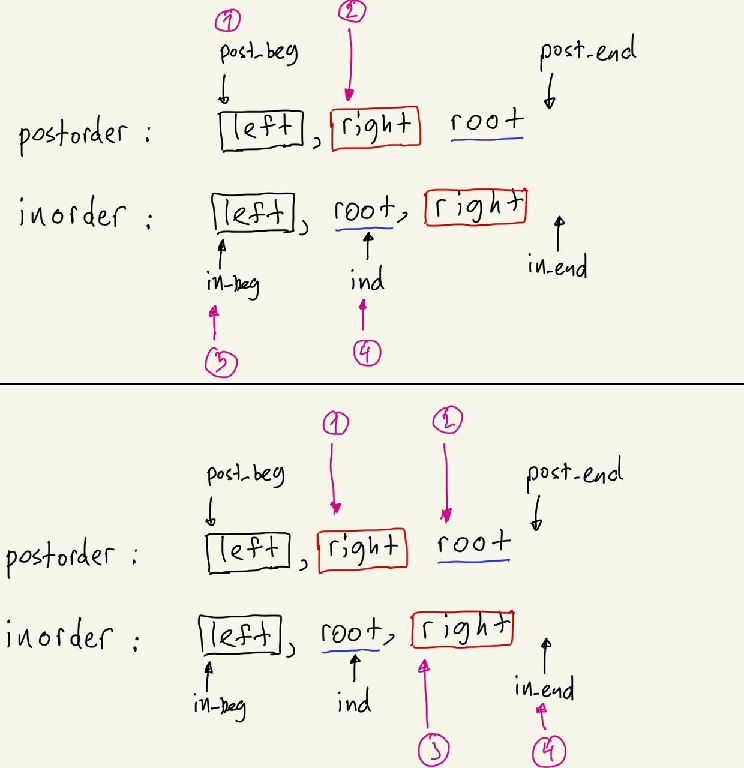 ① ②
post_beg post_end
postorder : left , right root
inorder : left , root , right
in_beg ind in_end
③ ④
① ②
post_beg post_end
postorder : left , right root
inorder : left , root , right
in_beg ind in_end
③ ④